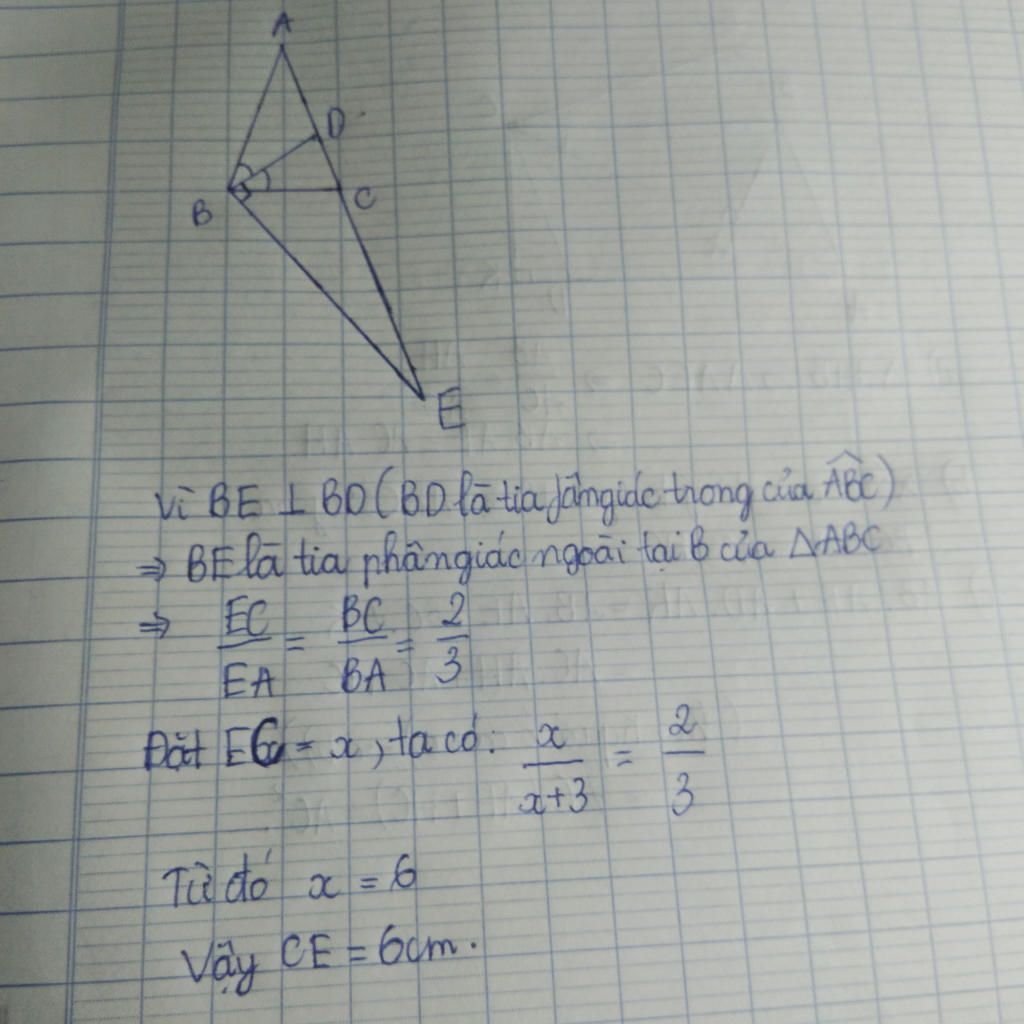 A
D
B
C
E
Vì BE ⊥ BD (BD là tia fângiác trong của ABC)
⇒ BE là tia phângiác ngoài tại B của △ABC
⇒ EC/EA = BC/BA = 2/3
Đặt EC = x, ta có: x/(x+3) = 2/3
Từ đó x = 6
Vậy CE = 6cm.